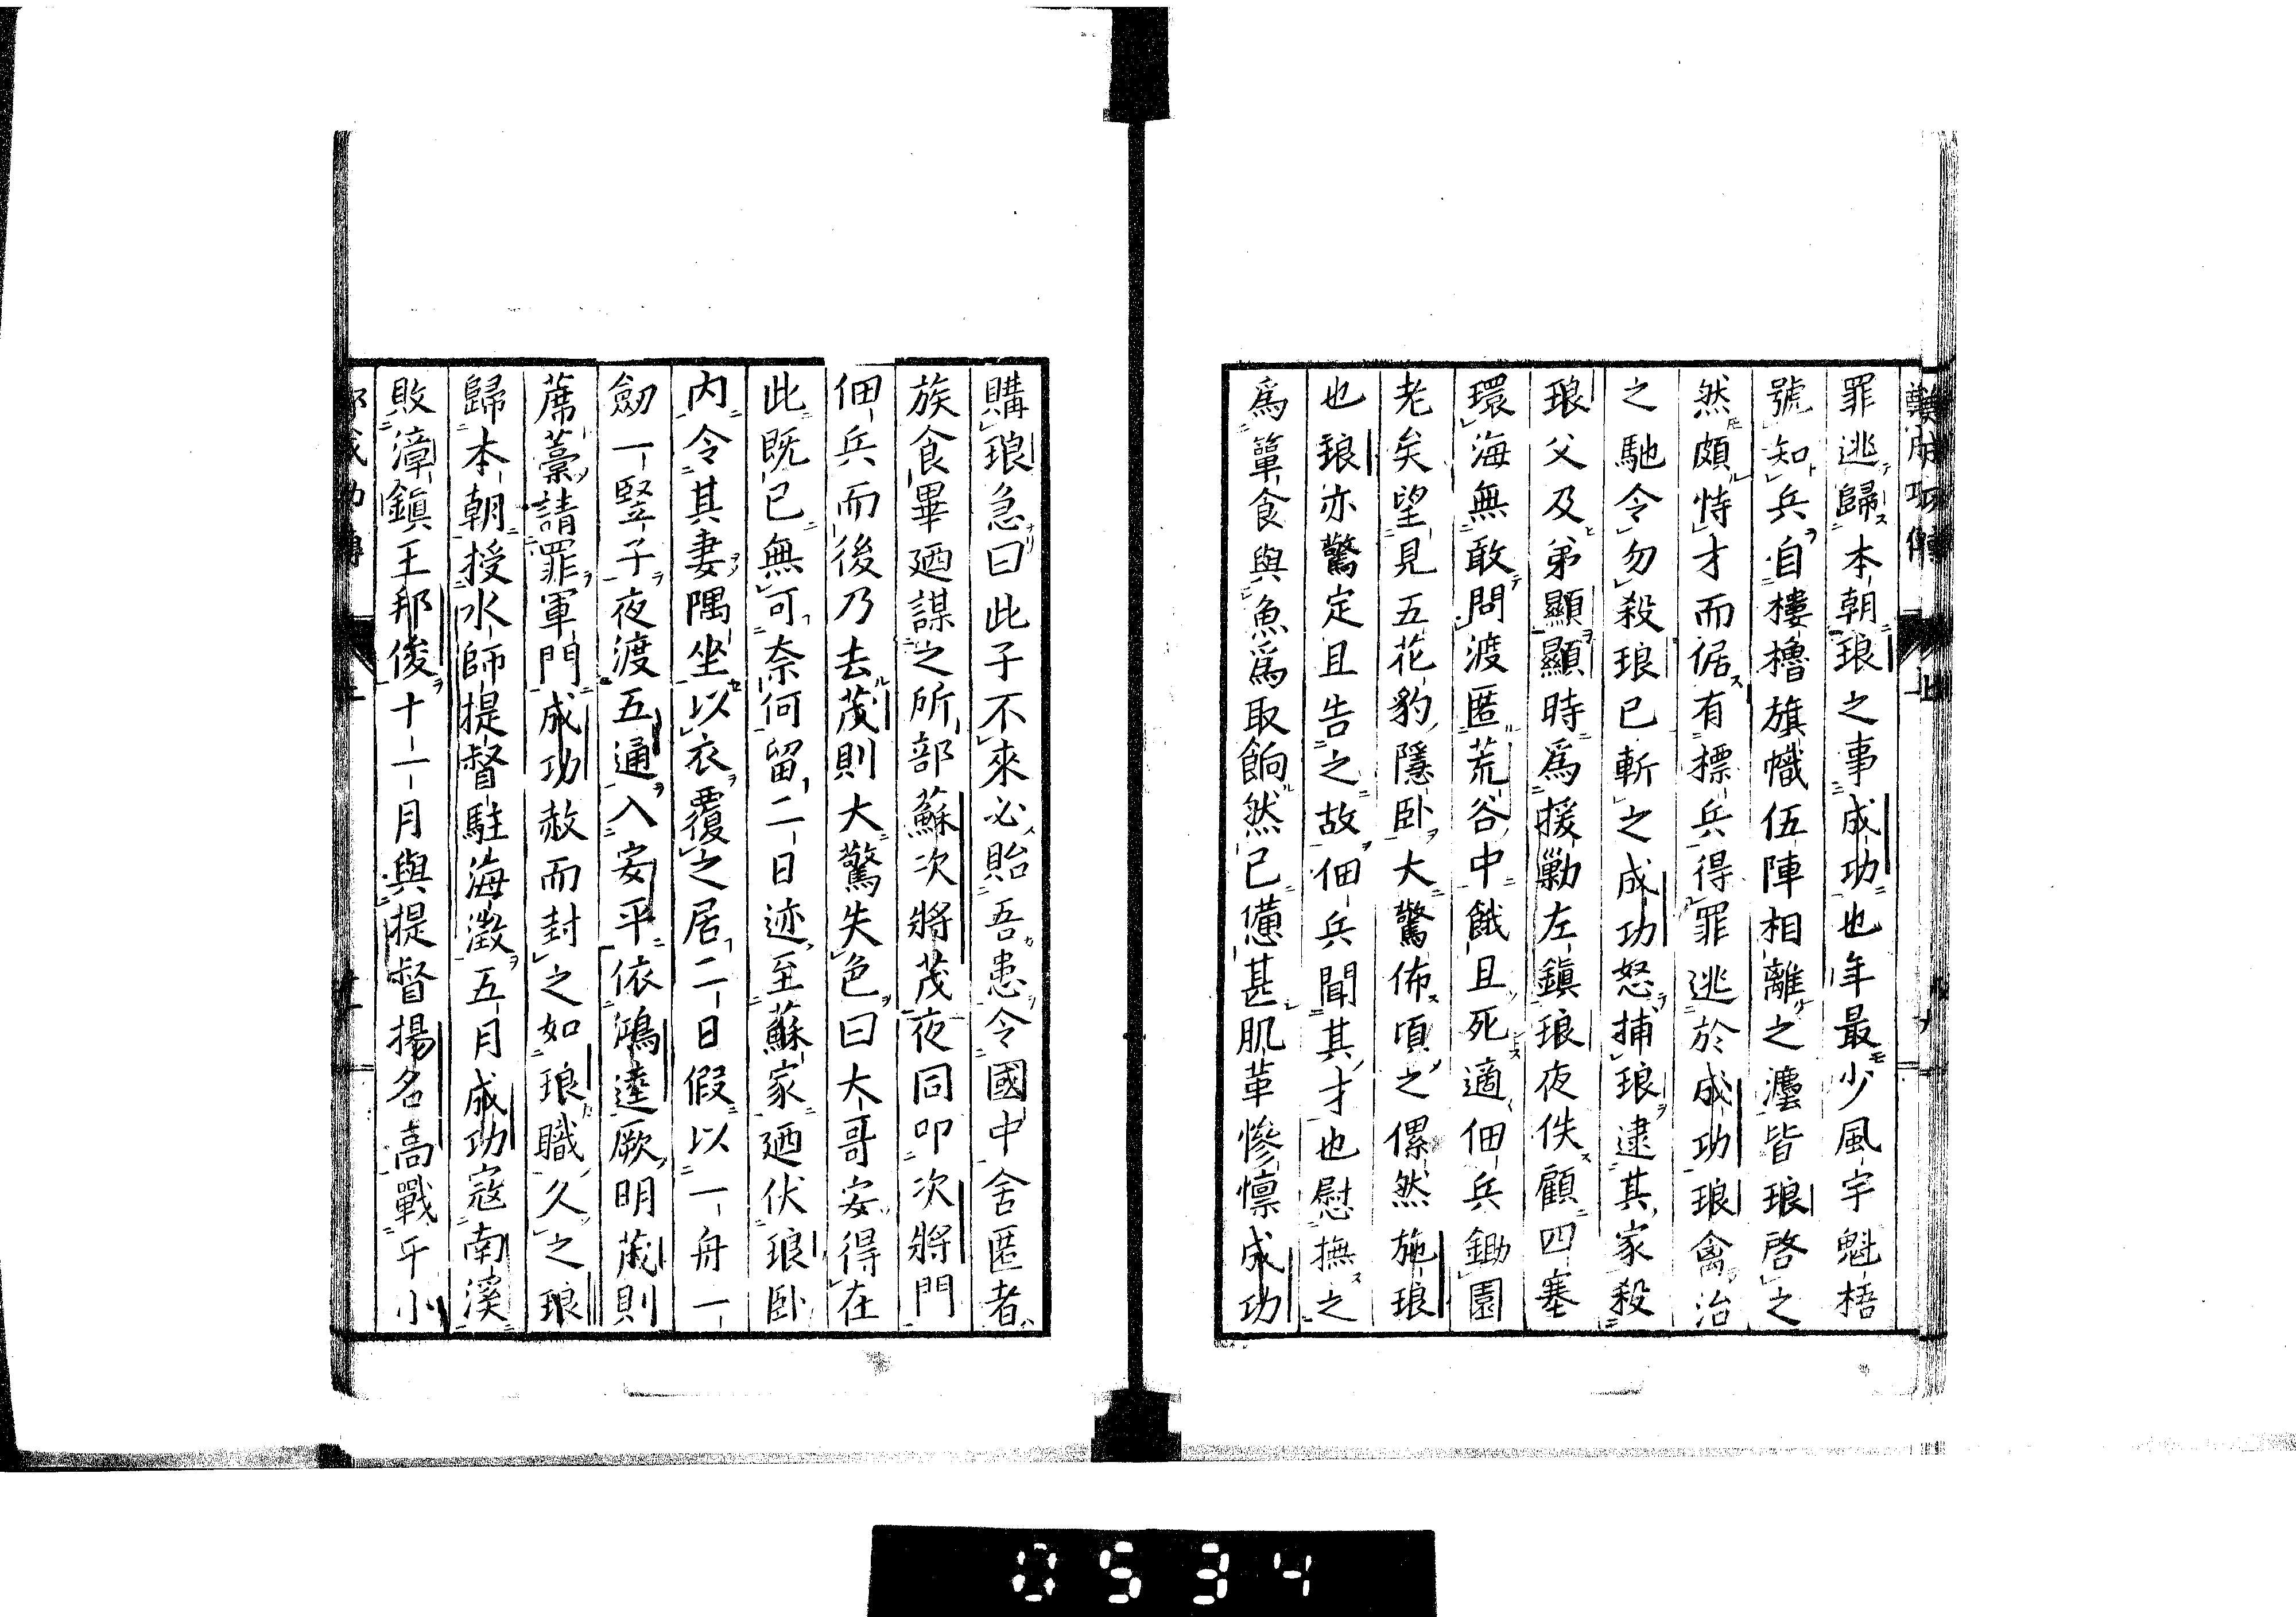 罪逃歸本朝琅之事成功也年最少風宇魁梧
號知兵自樓櫓旗幟伍陣相離之灋皆琅啓之
然頗恃才而倨有標兵得罪逃於成功琅禽治
之馳令勿殺琅已斬之成功怒捕琅逮其家殺
琅父及弟顯顯時爲援勦左鎮琅夜佚顧四塞
環海無敢問渡匿荒谷中餓且死適佃兵鋤園
老矣望見五花豹隱卧大驚怖頃之儽然施琅
也琅亦驚定且告之故佃兵聞其才也慰撫之
爲簞食與魚爲取餉然已憊甚肌革慘懍成功
購琅急曰此子不來必貽吾患令國中舍匿者
族食畢廼謀之所部蘇次將茂夜同叩次將門
佃兵而後乃去茂則大驚失色曰大哥安得在
此既已無可奈何留二日迹至蘇家廼伏琅卧
内令其妻隅坐以衣覆之居二日假以一舟一
劒一竪子夜渡五通入安平依鴻逵厥明茂則
蓆藁請罪軍門成功赦而封之如琅職久之琅
歸本朝授水師提督駐海澂五月成功寇南溪
敗漳鎮王邦俊十一月與提督揚名高戰于小
0534